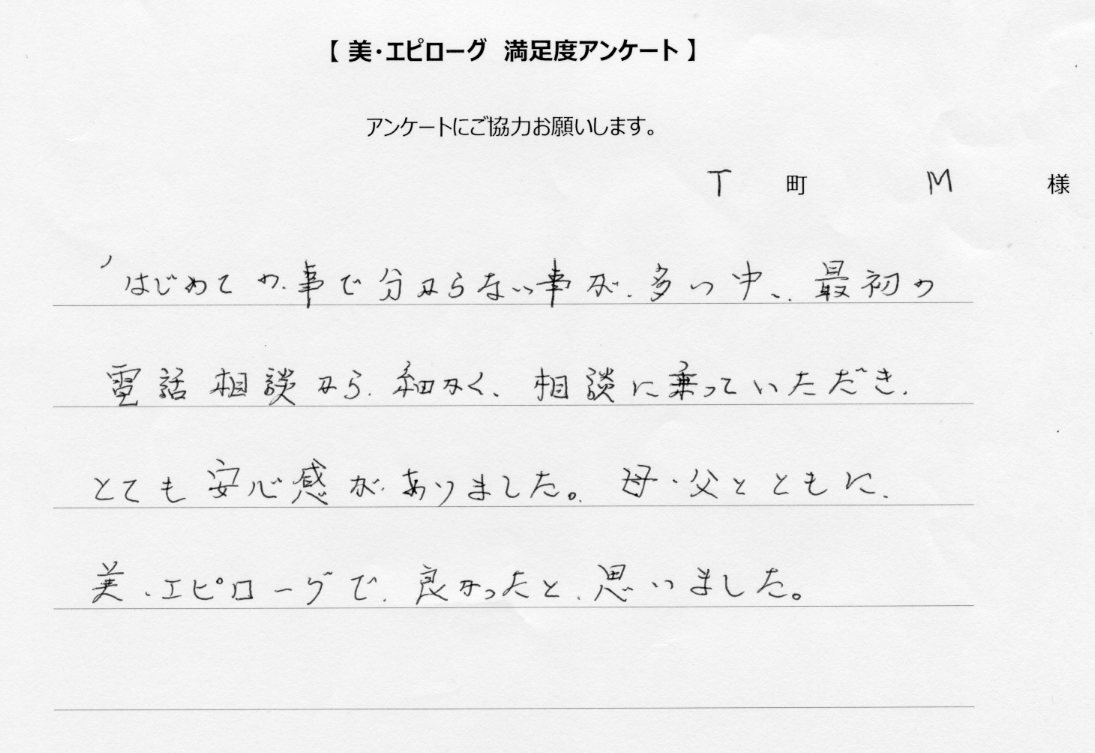 【 美・エピローグ 満足度アンケート 】
アンケートにご協力お願いします。
T 町 M 様
はじめての事で分からない事が多い中、最初の
電話相談から細かく、相談に乗っていただき、
とても安心感がありました。母・父とともに、
美・エピローグで良かったと思いました。